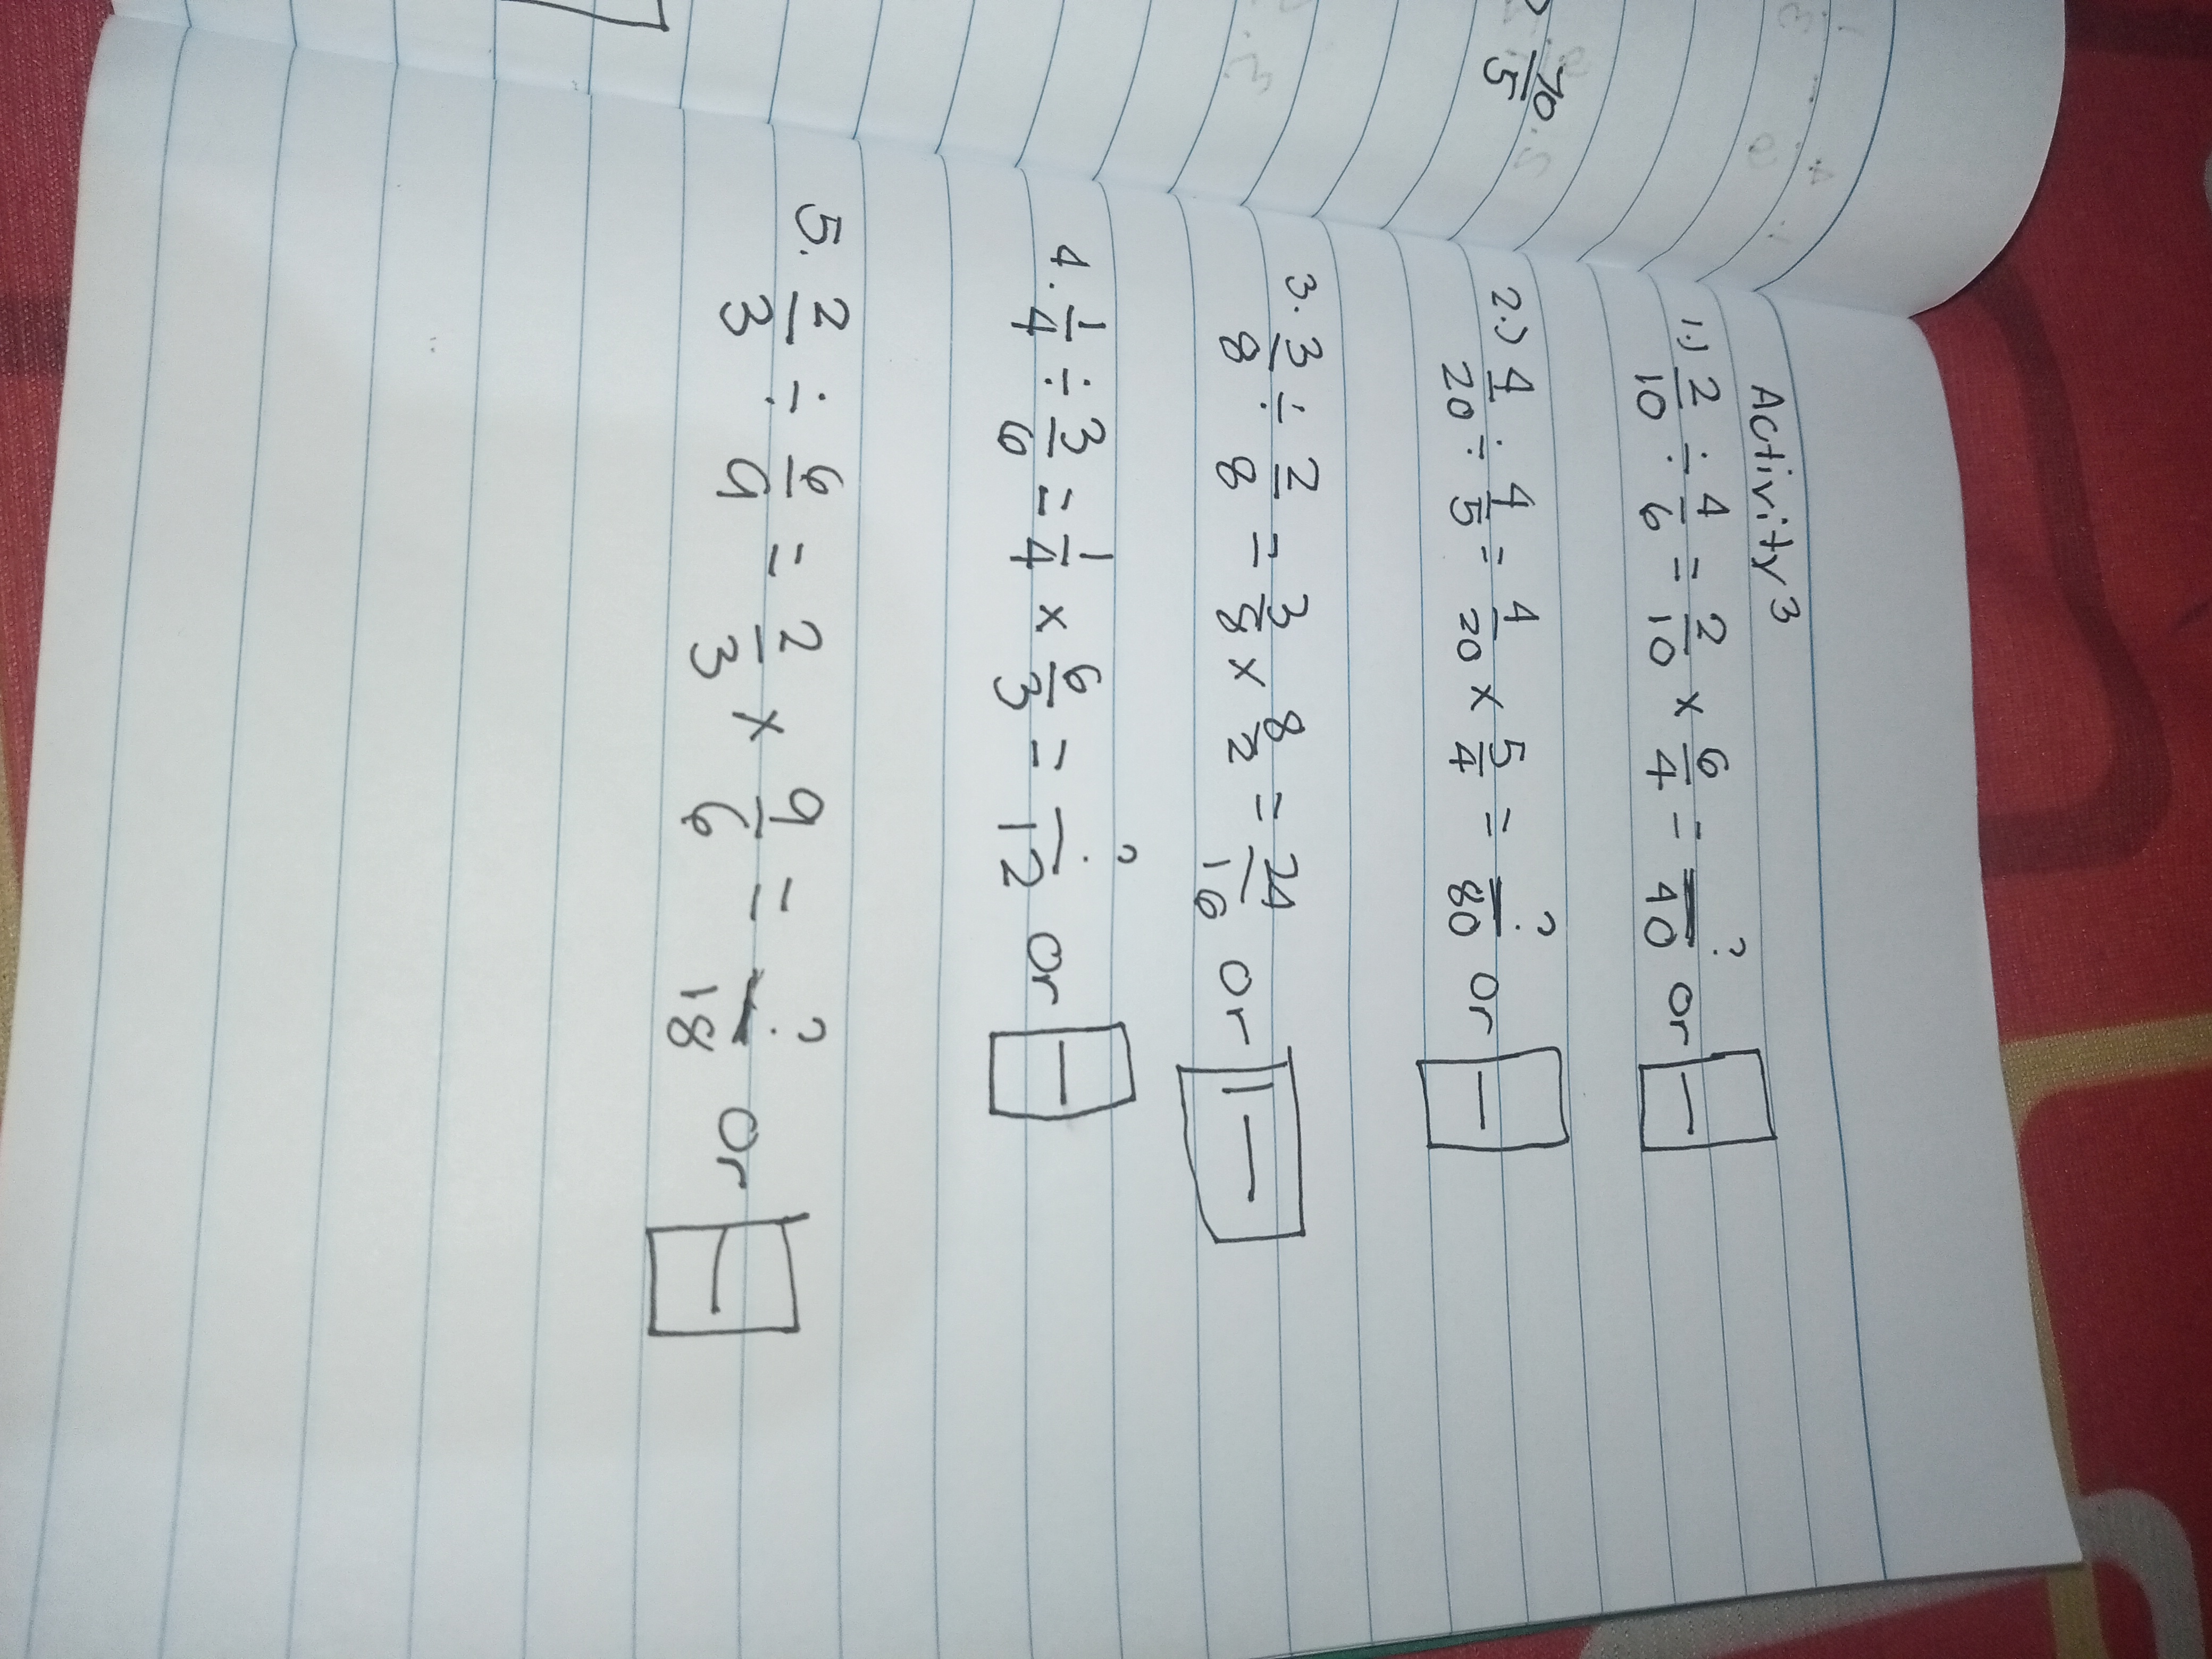 Activity 3
1.) 2/10 ÷ 4/6 = 2/10 x 6/4 = ?/40 or
2.) 4/20 ÷ 4/5 = 4/20 x 5/4 = ?/80 or
3. 3/8 ÷ 2/8 = 3/8 x 8/2 = 24/16 or 1
4. 1/4 ÷ 3/6 = 1/4 x 6/3 = ?/12 or
5. 2/3 ÷ 6/9 = 2/3 x 9/6 = ?/18 or